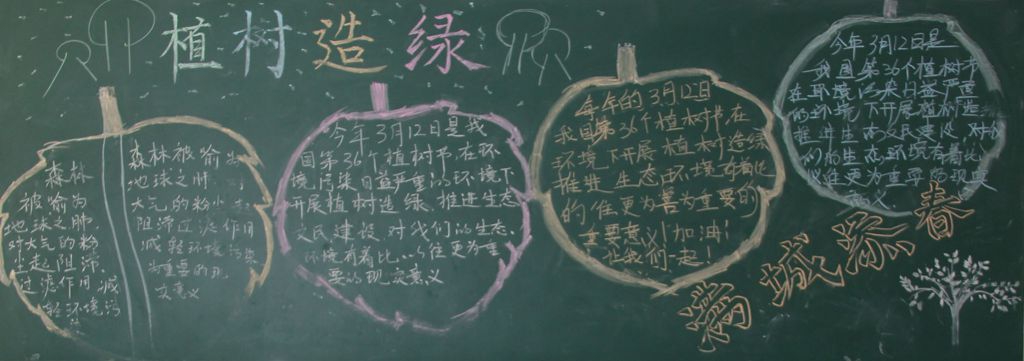 植树造绿
森林
被喻为
地球之肺
对大气的粉
小起阻滞
过滤作用减
轻环境污
森林被喻为
地球之肺
大气的粉小
阻滞过滤作用
减轻环境污染
为重要的现
实意义
今年3月12日是我
国第36个植树节,在环
境污染日益严重的环境下
开展植树造绿、推进生态
文民建设,对我们的生态、
环境有着比以住更为重
要的现实意义
每年的3月12日
我国第36个植树节,在
环境下开展植树造绿
推进生态由环境有着比
的住更为善为重要的
重要意义!加油!
让我们一起!
今年3月12日是
我国第36个植树节
在环境污染日益严重
的环境下开展植树造
推进生态文民建设,对我
们的生态环境有着比
以往更为重要的现实
意义
满城添春